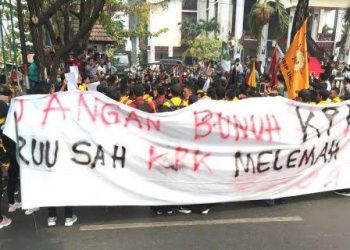 JANGAN BUNUH KPK
RUU SAH KPK MELEMAH